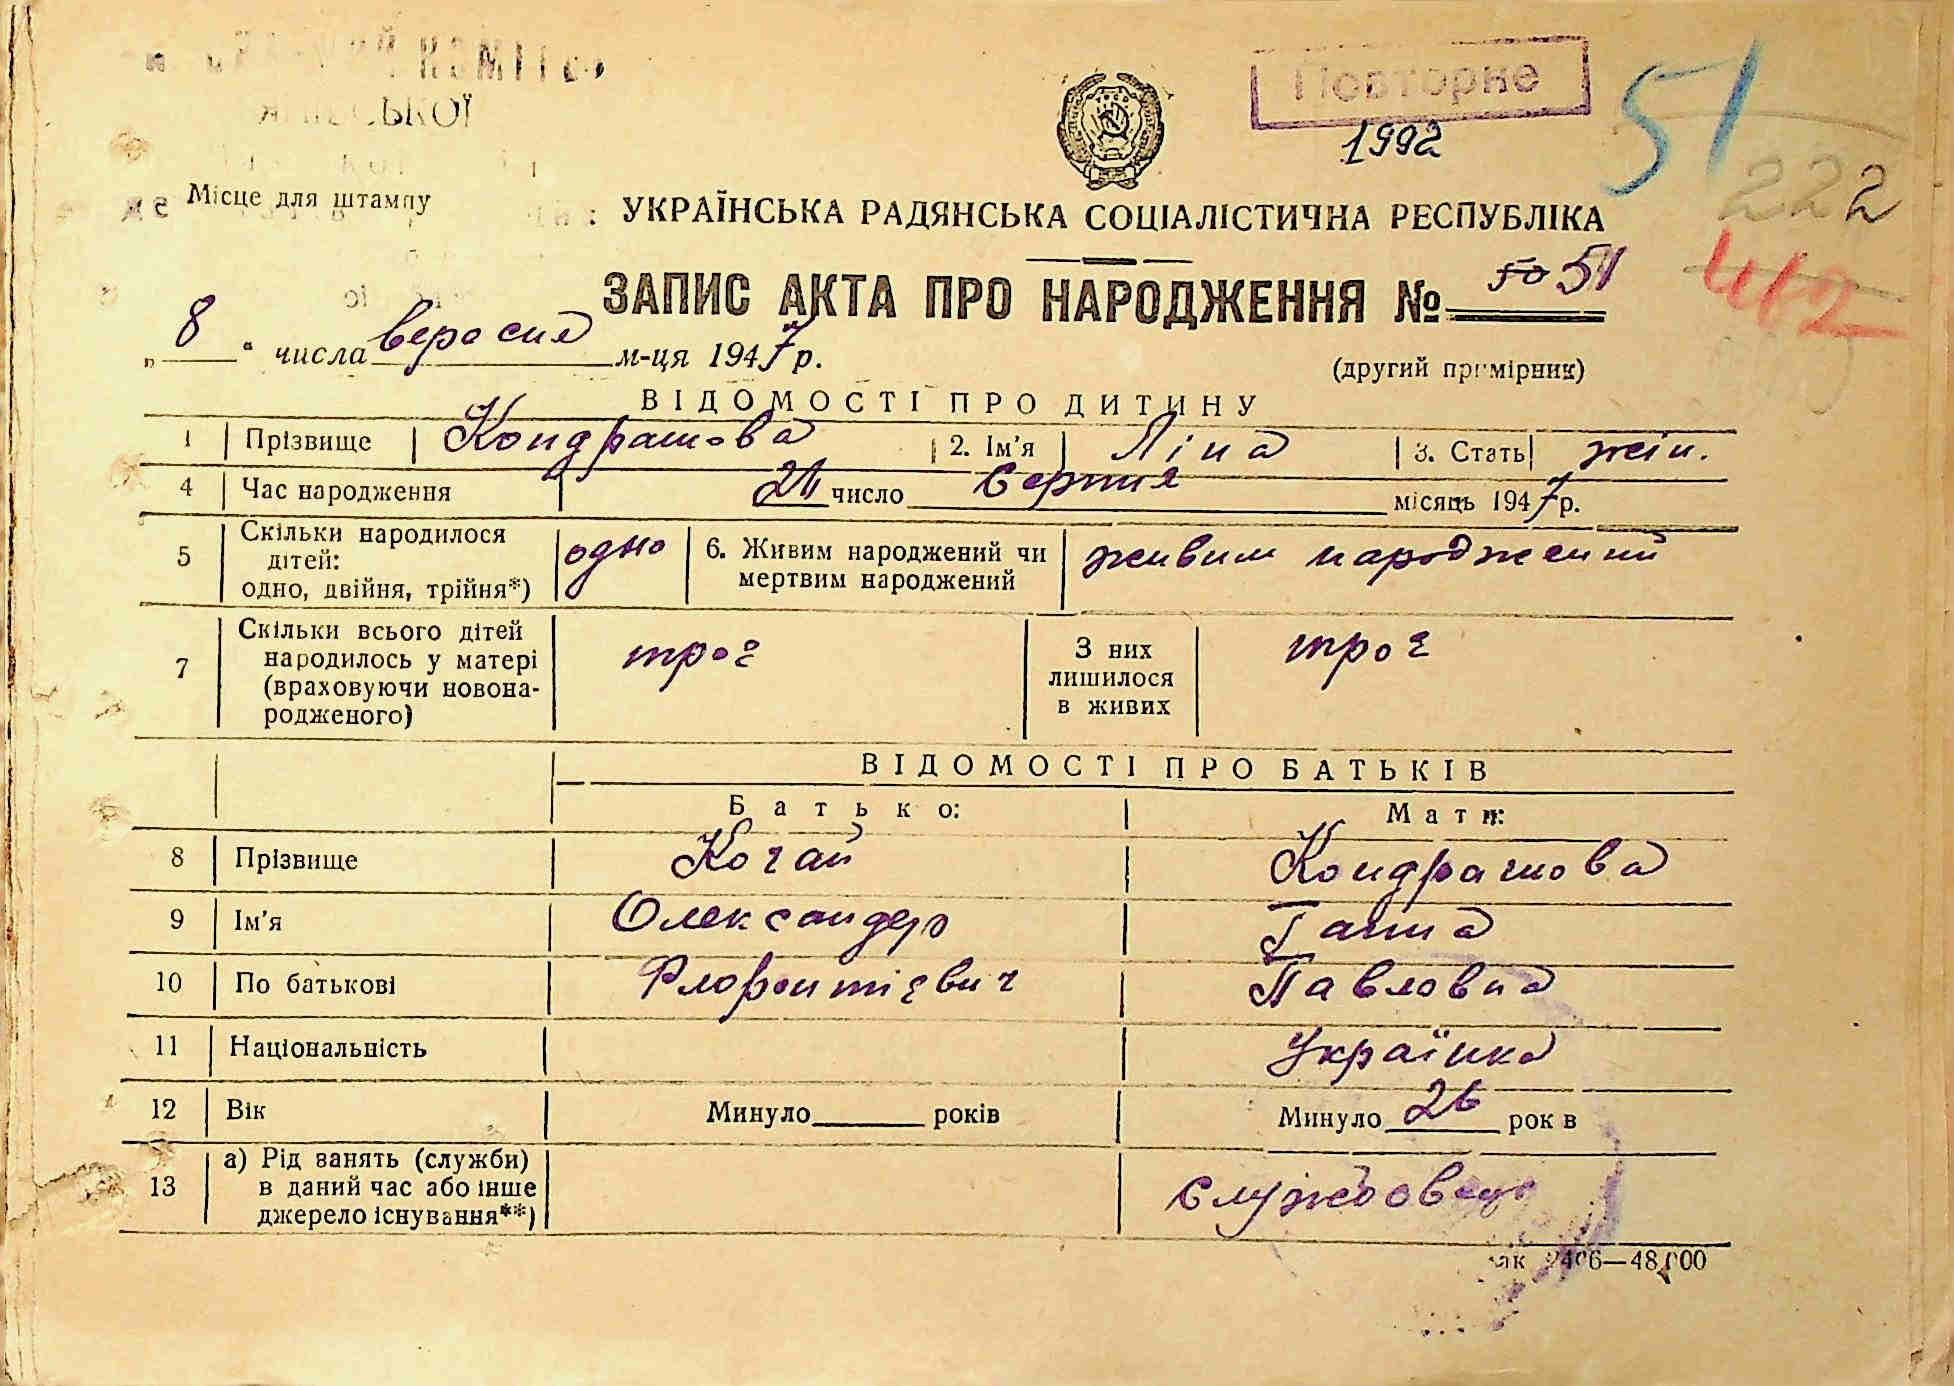 Повторне
1992
51
222
Місце для штампу
УКРАЇНСЬКА РАДЯНСЬКА СОЦІАЛІСТИЧНА РЕСПУБЛІКА
ЗАПИС АКТА ПРО НАРОДЖЕННЯ № 50 51
462
„8“ числа вересня м-ця 1947 р.
(другий примірник)
ВІДОМОСТІ ПРО ДИТИНУ
1 Прізвище Кондрашова 2. Ім'я Ліна 3. Стать жін.
4 Час народження число Серпня місяць 1947 р.
5 Скільки народилося дітей: одно, двійня, трійня*) одно 6. Живим народжений чи мертвим народжений живим народжений
7 Скільки всього дітей народилось у матері (враховуючи новонародженого) троє З них лишилося в живих троє
ВІДОМОСТІ ПРО БАТЬКІВ
Батько: Мати:
8 Прізвище Кочай Кондрашова
9 Ім'я Олександер Ганна
10 По батькові Флорентієвич Павловна
11 Національність Українка
12 Вік Минуло років Минуло 26 років
13 а) Рід занять (служби) в даний час або інше джерело існування**) Службовець